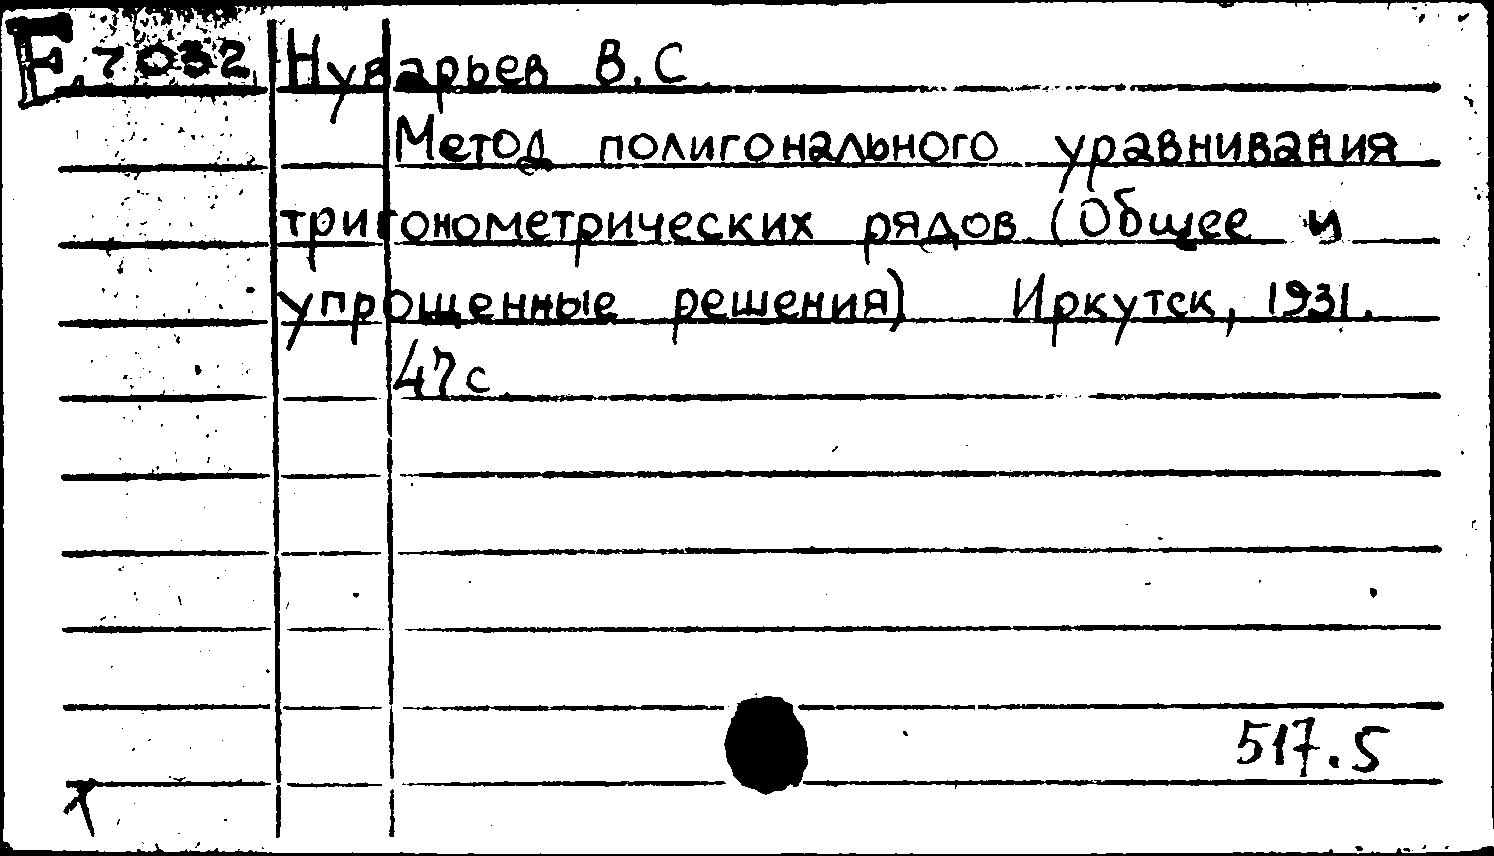 E 7032 Нуварьев В.С.
Метод полигонального уравнивания
тригонометрических рядов (Общее и
упрощенные решения) Иркутск, 1931.
47с.
517.5